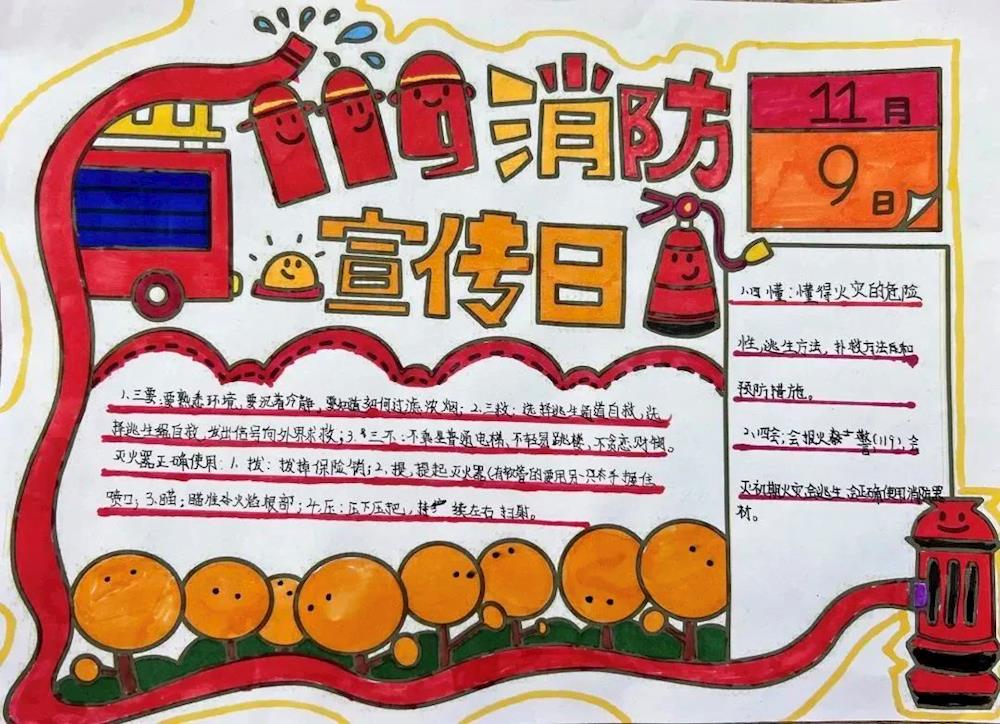 119消防
宣传日
11月
9日
1.三要:要熟悉环境、要沉着冷静,要知道如何过滤浓烟;2.三救:选择逃生通道自救,选
择逃生绳自救,发出信号向外界求救;3.三不:不乘坐普通电梯、不轻易跳楼、不贪恋财物。
灭火器正确使用:1.拨:拨掉保险销;2.提,提起灭火器(有软管的要用另一只右手握住
喷口;3.瞄:瞄准火焰根部;4.压:压下压把,续左右扫射。
1.四懂:懂得火灾的危险
性,逃生方法,扑救方法和
预防措施。
2.四会:会报火警(119),会
灭初期火灾会逃生,会正确使用消防器
材。